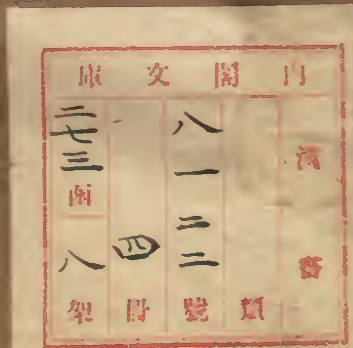 內閣文庫
漢書
類
八一二二號
四冊
二七三函
八架